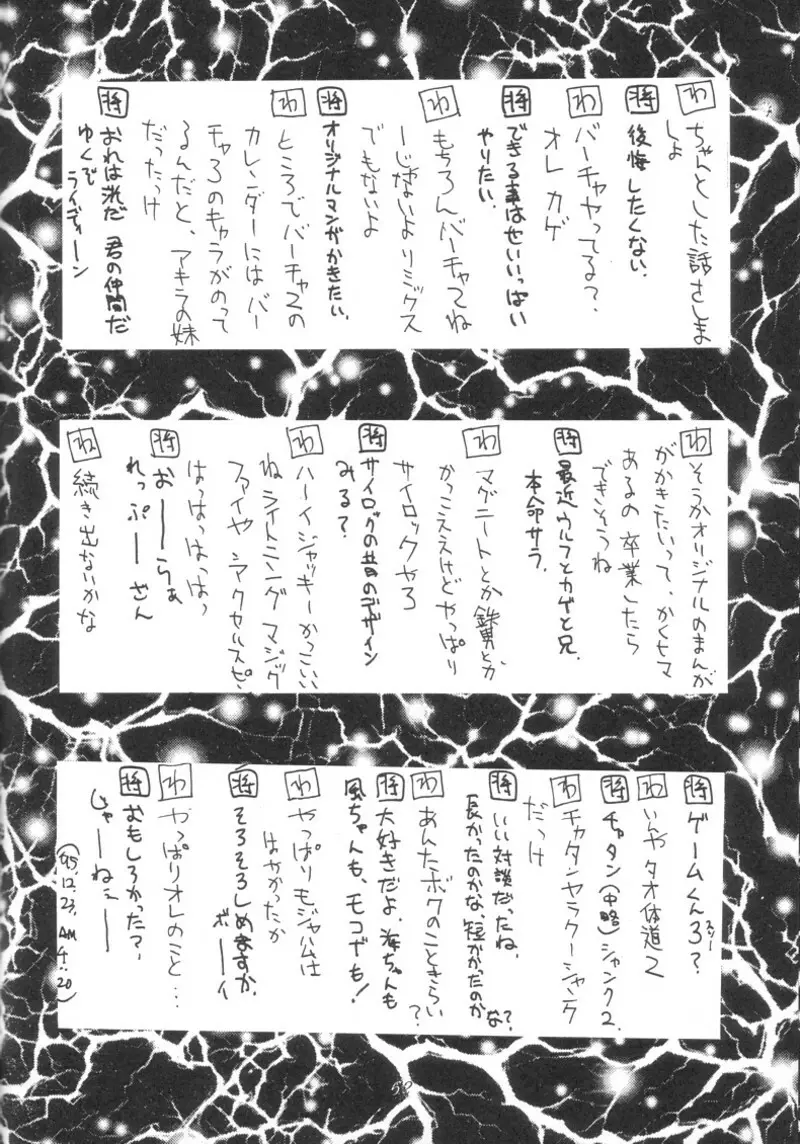 わ ちゃんとした話さしま
しょ
将 後悔したくない。
わ バーチャやってる?
オレ カゲ
将 できる事はせいいっぱい
やりたい。
わ もちろんバーチャでね
ーじゃないよ リミックス
でもないよ
将 オリジナルマンガかきたい。
わ ところでバーチャ2の
カレンダーにはバー
チャ3のキャラがのって
るんだと、アキラの妹
だったっけ
将 おれは洸だ 君の仲間だ
ゆくぞ
ライディーン
わ そうかオリジナルのまんが
がかきたいって、かくヒマ
あるの 卒業したら
できそうね
将 最近ウルフとカゲと兄。
本命サラ。
わ マグニートとか鉄男とか
かっこええけどやっぱり
サイロックやろ
将 サイロックの昔のデザイン
みる?
わ ハーイジャッキーかっこいい
ね ライトニング マジック
ファイヤ シアクセルスピ、
はっはっはっはっ
将 おーーらぁ
れっぷーざん
わ 続き出ないかな
将 ゲームくん3?
わ いんや タオ体道2
将 チャタン(中略)シャンク2。
わ チャタンヤラクーシャンク
だっけ
将 いい対談だったね。
長かったのかな、短かかったのか
な?
わ あんたボクのこときらい
?
将 大好きだよ。海ちゃんも
風ちゃんも、モコナも!
わ やっぱりモジャハムは
はやかったか
将 そろそろしめますか。
ボーイ
わ やっぱりオレのこと…
将 おもしろかった?
じゃーねぇーー
('95.12.23. AM
4:20)